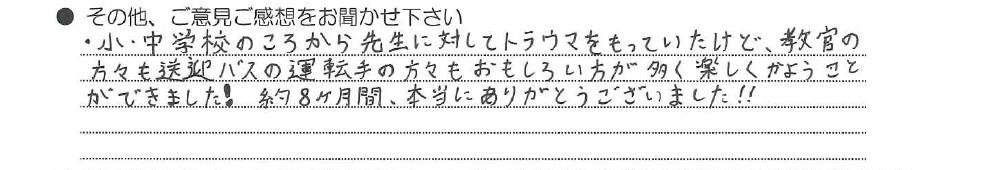 ● その他、ご意見ご感想をお聞かせ下さい
・小・中学校のころから先生に対してトラウマをもっていたけど、教官の
方々も送迎バスの運転手の方々もおもしろい方が多く楽しくかようこと
ができました! 約8ヶ月間、本当にありがとうございました!!